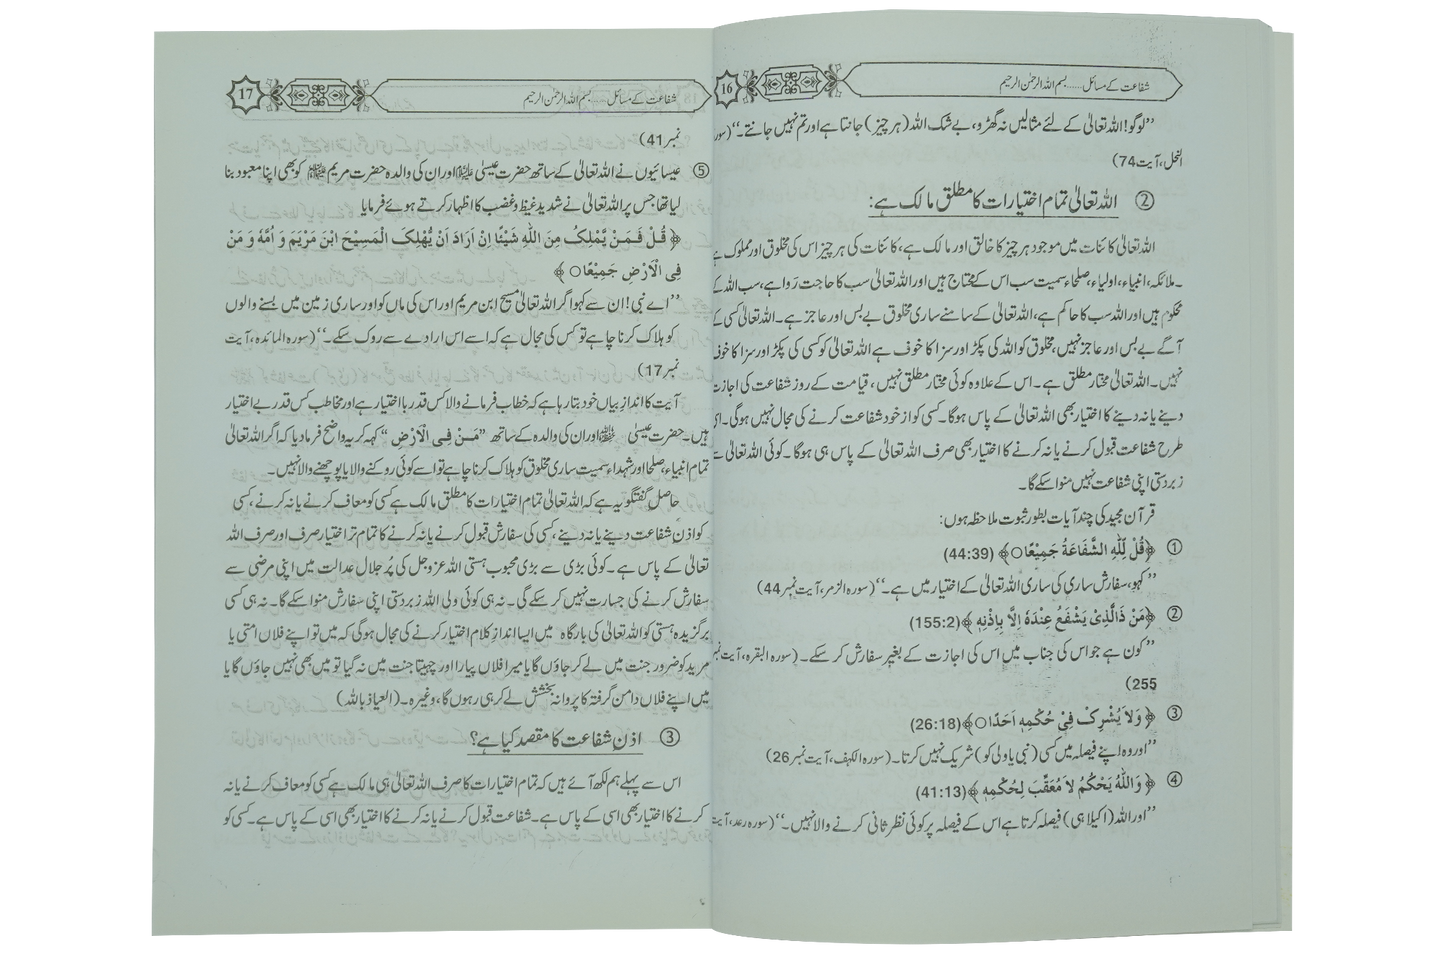 16
شفاعت کے مسائل......بسم اللہ الرحمٰن الرحیم
’’لوگو! اللہ تعالیٰ کے لئے مثالیں نہ گھڑو، بے شک اللہ (ہر چیز) جانتا ہے اور تم نہیں جانتے۔‘‘ (سورہ
النحل، آیت 74)
② اللہ تعالیٰ تمام اختیارات کا مطلق مالک ہے:
اللہ تعالیٰ کائنات میں موجود ہر چیز کا خالق اور مالک ہے، کائنات کی ہر چیز اس کی مخلوق اور مملوک ہے
۔ ملائکہ، انبیاء، اولیاء، صلحاء سمیت سب اس کے محتاج ہیں اور اللہ تعالیٰ سب کا حاجت روا ہے، سب اللہ کے
محکوم ہیں اور اللہ سب کا حاکم ہے، اللہ تعالیٰ کے سامنے ساری مخلوق بے بس اور عاجز ہے۔ اللہ تعالیٰ کسی کے
آگے بے بس اور عاجز نہیں، مخلوق کو اللہ کی پکڑ اور سزا کا خوف ہے اللہ تعالیٰ کو کسی کی پکڑ اور سزا کا خوف
نہیں۔ اللہ تعالیٰ مختار مطلق ہے۔ اس کے علاوہ کوئی مختار مطلق نہیں، قیامت کے روز شفاعت کی اجازت
دینے یا نہ دینے کا اختیار بھی اللہ تعالیٰ کے پاس ہوگا۔ کسی کو از خود شفاعت کرنے کی مجال نہیں ہوگی۔ اسی
طرح شفاعت قبول کرنے یا نہ کرنے کا اختیار بھی صرف اللہ تعالیٰ کے پاس ہی ہوگا۔ کوئی اللہ تعالیٰ سے
زبردستی اپنی شفاعت نہیں منوا سکے گا۔
قرآن مجید کی چند آیات بطور ثبوت ملاحظہ ہوں:
① ﴿قُلْ لِّلّٰهِ الشَّفَاعَةُ جَمِیْعًا○﴾ (44:39)
’’کہو، سفارش ساری کی ساری اللہ تعالیٰ کے اختیار میں ہے۔‘‘ (سورہ الزمر، آیت نمبر 44)
② ﴿مَنْ ذَالَّذِیْ یَشْفَعُ عِنْدَهٗ اِلَّا بِاِذْنِهٖ﴾ (155:2)
’’کون ہے جو اس کی جناب میں اس کی اجازت کے بغیر سفارش کر سکے۔ (سورہ البقرہ، آیت نمبر
255)
③ ﴿وَلاَ یُشْرِکُ فِیْ حُکْمِهٖ اَحَدًا○﴾ (26:18)
’’اور وہ اپنے فیصلہ میں کسی (نبی یا ولی کو) شریک نہیں کرتا۔ (سورہ الکہف، آیت نمبر 26)
④ ﴿وَاللّٰهُ یَحْکُمُ لاَ مُعَقِّبَ لِحُکْمِهٖ﴾ (41:13)
’’اور اللہ (اکیلا ہی) فیصلہ کرتا ہے اس کے فیصلہ پر کوئی نظر ثانی کرنے والا نہیں۔‘‘ (سورہ رعد، آیت
17
شفاعت کے مسائل......بسم اللہ الرحمٰن الرحیم
نمبر 41)
⑤ عیسائیوں نے اللہ تعالیٰ کے ساتھ حضرت عیسیٰ علیہ السلام اور ان کی والدہ حضرت مریم کو بھی اپنا معبود بنا
لیا تھا جس پر اللہ تعالیٰ نے شدید غیظ و غضب کا اظہار کرتے ہوئے فرمایا
﴿قُلْ فَمَنْ یَّمْلِکُ مِنَ اللّٰهِ شَیْئًا اِنْ اَرَادَ اَنْ یُّهْلِکَ الْمَسِیْحَ ابْنَ مَرْیَمَ وَ اُمَّهٗ وَ مَنْ
فِی الْاَرْضِ جَمِیْعًا○﴾
’’اے نبی! ان سے کہو اگر اللہ تعالیٰ مسیح ابن مریم اور اس کی ماں کو اور ساری زمین میں بسنے والوں
کو ہلاک کرنا چاہے تو کس کی مجال ہے کہ اسے اس ارادے سے روک سکے۔‘‘ (سورہ المائدہ، آیت
نمبر 17)
آیت کا انداز بیاں خود بتا رہا ہے کہ خطاب فرمانے والا کس قدر با اختیار ہے اور مخاطب کس قدر بے اختیار
ہیں۔ حضرت عیسیٰ علیہ السلام اور ان کی والدہ کے ساتھ ”مَنْ فِی الْاَرْضِ“ کہہ کر یہ واضح فرما دیا کہ اگر اللہ تعالیٰ
تمام انبیاء، صلحا اور شہداء سمیت ساری مخلوق کو ہلاک کرنا چاہے تو اسے کوئی روکنے والا یا پوچھنے والا نہیں۔
حاصل گفتگو یہ ہے کہ اللہ تعالیٰ تمام اختیارات کا مطلق مالک ہے کسی کو معاف کرنے یا نہ کرنے، کسی
کو اذنِ شفاعت دینے یا نہ دینے، کسی کی سفارش قبول کرنے یا نہ کرنے کا تمام تر اختیار صرف اور صرف اللہ
تعالیٰ کے پاس ہے۔ کوئی بڑی سے بڑی محبوب ہستی اللہ عزوجل کی پُر جلال عدالت میں اپنی مرضی سے
سفارش کرنے کی جسارت نہیں کر سکے گی۔ نہ ہی کوئی ولی اللہ زبردستی اپنی سفارش منوا سکے گا۔ نہ ہی کسی
برگزیدہ ہستی کو اللہ تعالیٰ کی بارگاہ میں ایسا انداز کلام اختیار کرنے کی مجال ہوگی کہ میں تو اپنے فلاں امتی یا
مرید کو ضرور جنت میں لے کر جاؤں گا یا میرا فلاں پیارا اور چہیتا جنت میں نہ گیا تو میں بھی نہیں جاؤں گا یا
میں اپنے فلاں دامن گرفتہ کا پروانہ بخشش لے کر ہی رہوں گا، وغیرہ۔ (العیاذ باللہ)
③ اذنِ شفاعت کا مقصد کیا ہے؟
اس سے پہلے ہم لکھ آئے ہیں کہ تمام اختیارات کا صرف اللہ تعالیٰ ہی مالک ہے کسی کو معاف کرنے یا نہ
کرنے کا اختیار بھی اسی کے پاس ہے۔ شفاعت قبول کرنے یا نہ کرنے کا اختیار بھی اسی کے پاس ہے۔ کسی کو